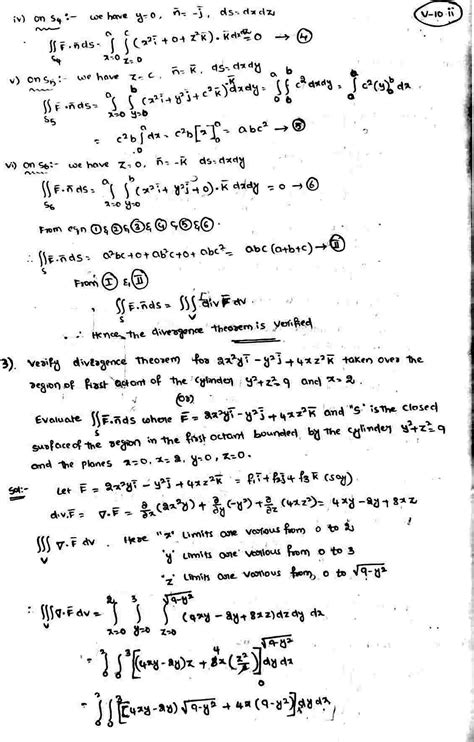 V-10 ii
iv) on S₄ :- we have y=0, n̄ = -j̄, ds=dxdz
∬_{S₄} F̄.n̄ds = ∫_{x=0}^{a} ∫_{z=0}^{c} (x²ī + 0 + z²k̄). k̄dxdz = 0 → ④
v) on S₅ :- we have z=c, n̄ = k̄, ds=dxdy
∬_{S₅} F̄.n̄ds = ∫_{x=0}^{a} ∫_{y=0}^{b} (x²ī + y²j̄ + c²k̄).k̄ dxdy = ∫_0^a ∫_0^b c² dxdy = ∫_0^a c²(y)_0^b dx
= c²b ∫_0^a dx = c²b [x]_0^a = abc² → ⑤
vi) on S₆ :- we have z=0, n̄ = -k̄ ds=dxdy
∬_{S₆} F̄.n̄ds = ∫_{x=0}^{a} ∫_{y=0}^{b} (x²ī + y²j̄ + 0). k̄ dxdy = 0 → ⑥
From eqn ① & ② & ③ & ④ & ⑤ & ⑥.
∴ ∬_S F̄.n̄ds = a²bc + 0 + ab²c + 0 + abc² = abc (a+b+c) → Ⅱ
From Ⅰ & Ⅱ
∬_S F̄.n̄ds = ∭_V div F̄ dv.
∴ Hence the divergence theorem is verified
3). Verify divergence Theorem for 2x²yī - y²j̄ + 4xz²k̄ taken over the
region of first octant of the cylinder y²+z²=9 and x=2.
(or)
Evaluate ∬_S F̄.n̄ds where F̄ = 2x²yī - y²j̄ + 4xz²k̄ and "S" is the closed
surface of the region in the first octant bounded by the cylinder y²+z²=9
and the planes x=0, x=2, y=0, z=0.
Sol:- Let F̄ = 2x²yī - y²j̄ + 4xz²k̄ = f₁ī + f₂j̄ + f₃k̄ (say)
div.F̄ = ∇.F̄ = ∂/∂x (2x²y) + ∂/∂y (-y²) + ∂/∂z (4xz²) = 4xy - 2y + 8xz
∭_V ∇.F̄ dv. Here "x" limits are various from 0 to 2
'y' limits are various from 0 to 3
"z" limits are various from, 0 to √9-y²
∴ ∭_V ∇.F̄ dv = ∫_{x=0}^{2} ∫_{y=0}^{3} ∫_{z=0}^{√9-y²} (4xy - 2y + 8xz) dz dy dx
= ∫_0^2 ∫_0^3 [(4xy - 2y)z + 8x (z²/2)]_0^{√9-y²} dy dx
= ∫_0^2 ∫_0^3 [(4xy - 2y) √9-y² + 4x (9-y²)] dy dx